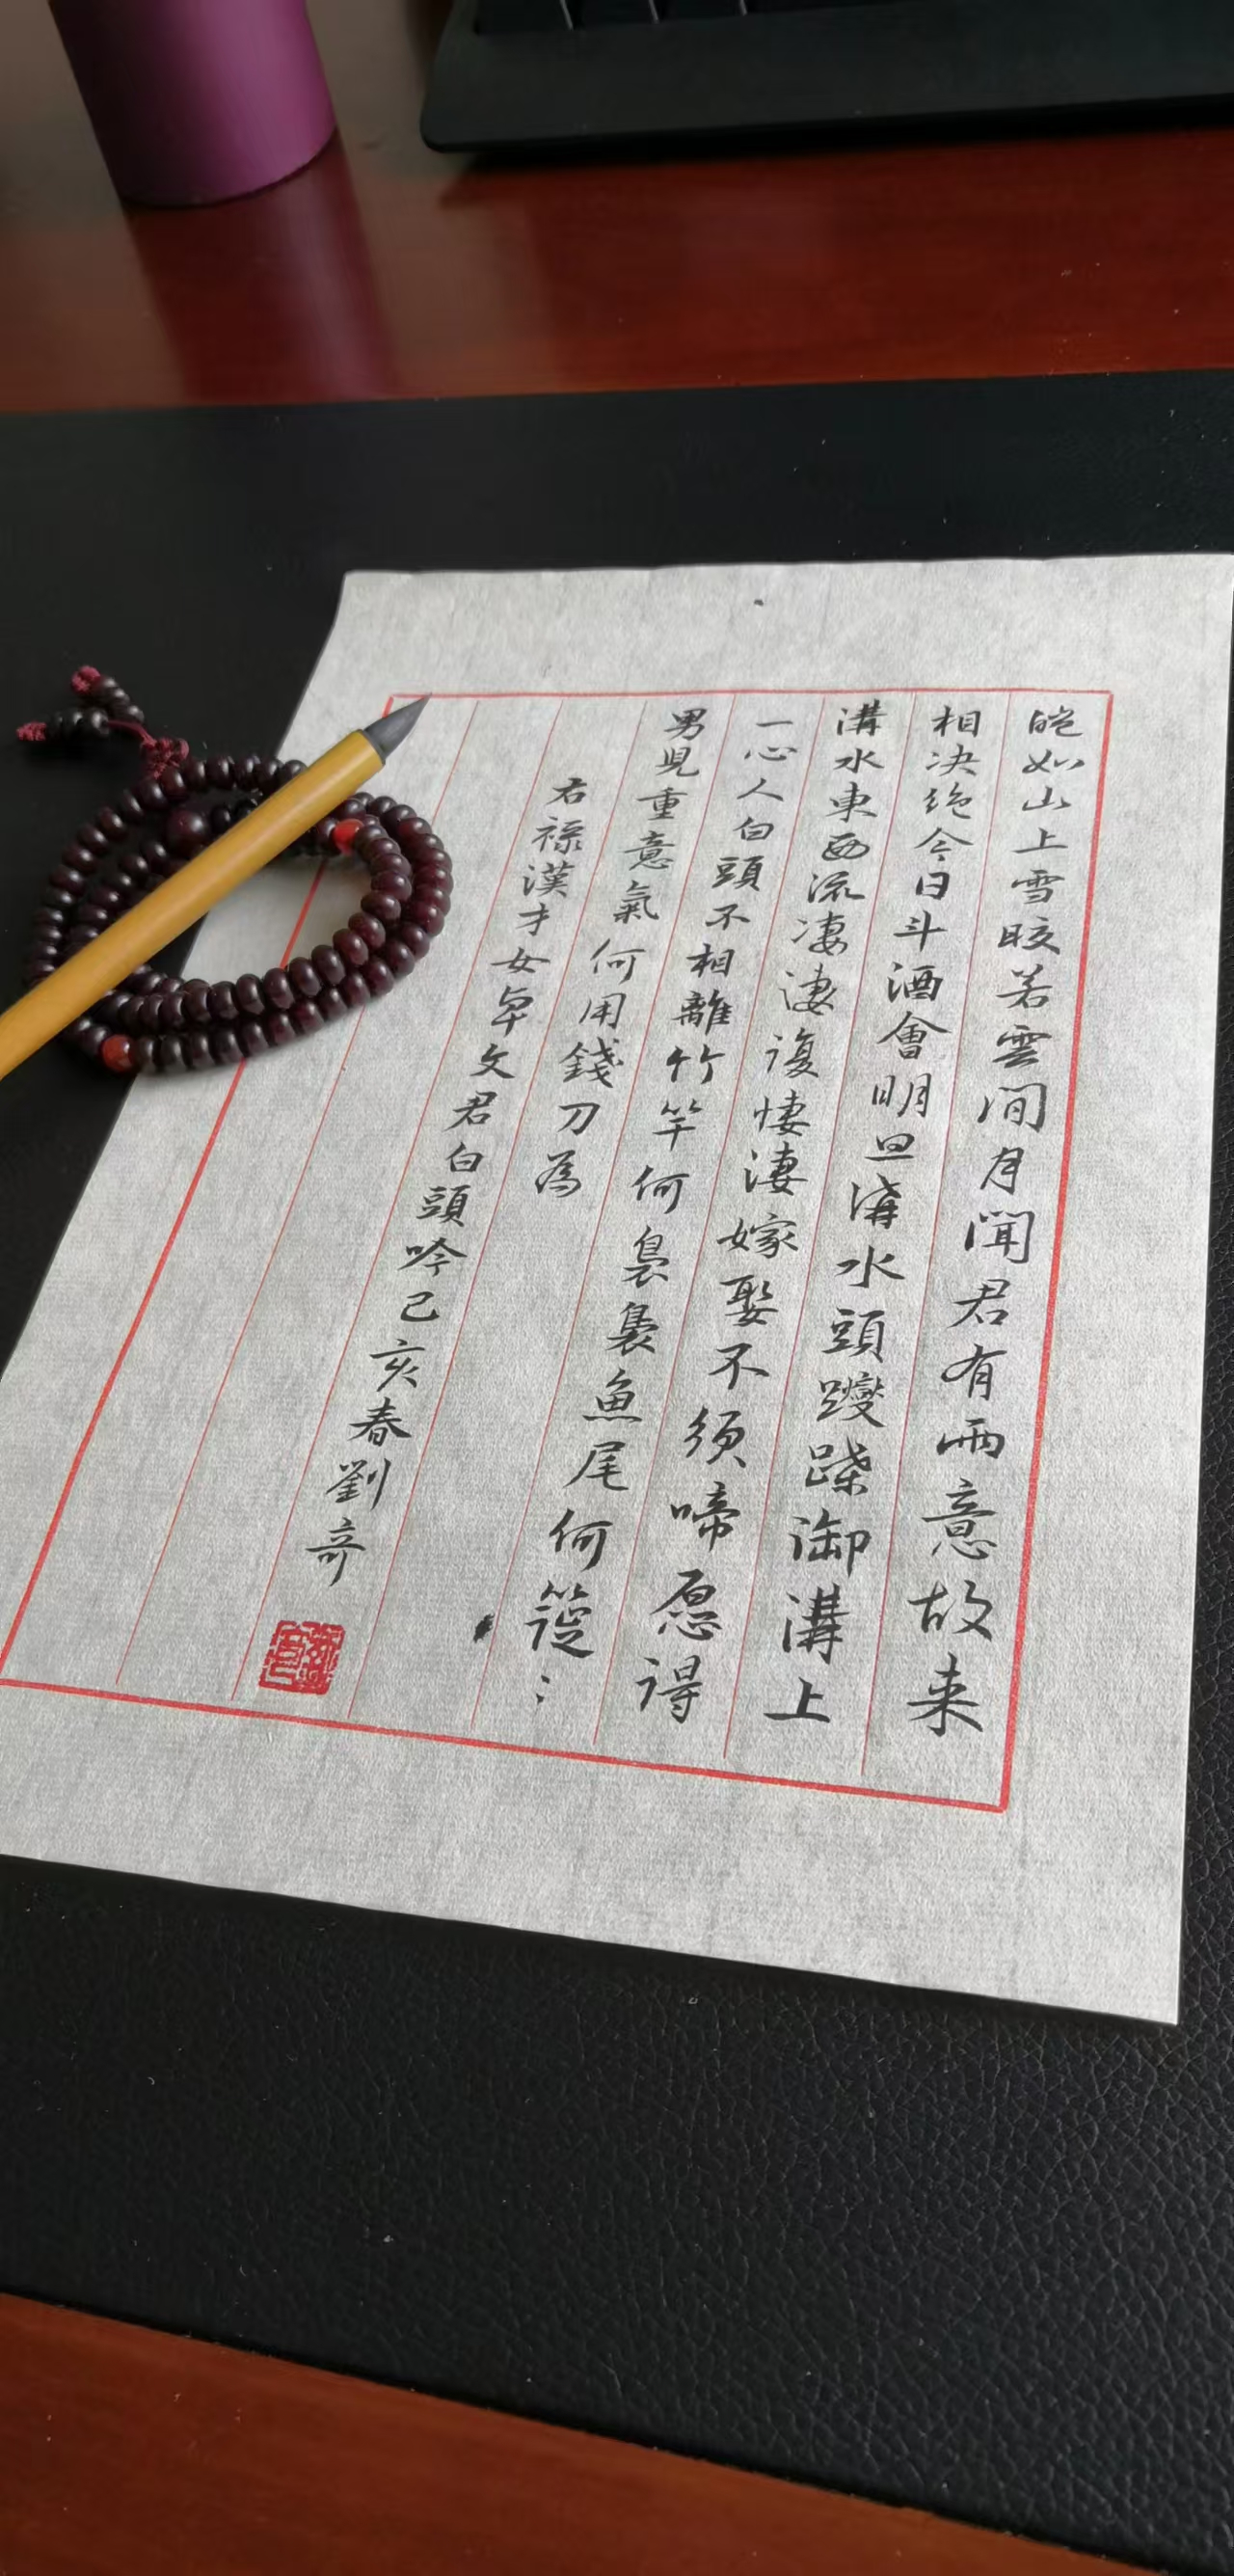 皚如山上雪皎若雲间月闻君有兩意故来
相决绝今日斗酒會明旦溝水頭躞蹀御溝上
溝水東西流凄凄復悽淒嫁娶不須啼愿得
一心人白頭不相離竹竿何裊裊魚尾何簁〻
男兒重意氣何用錢刀為
右録漢才女卓文君白頭吟己亥春劉奇